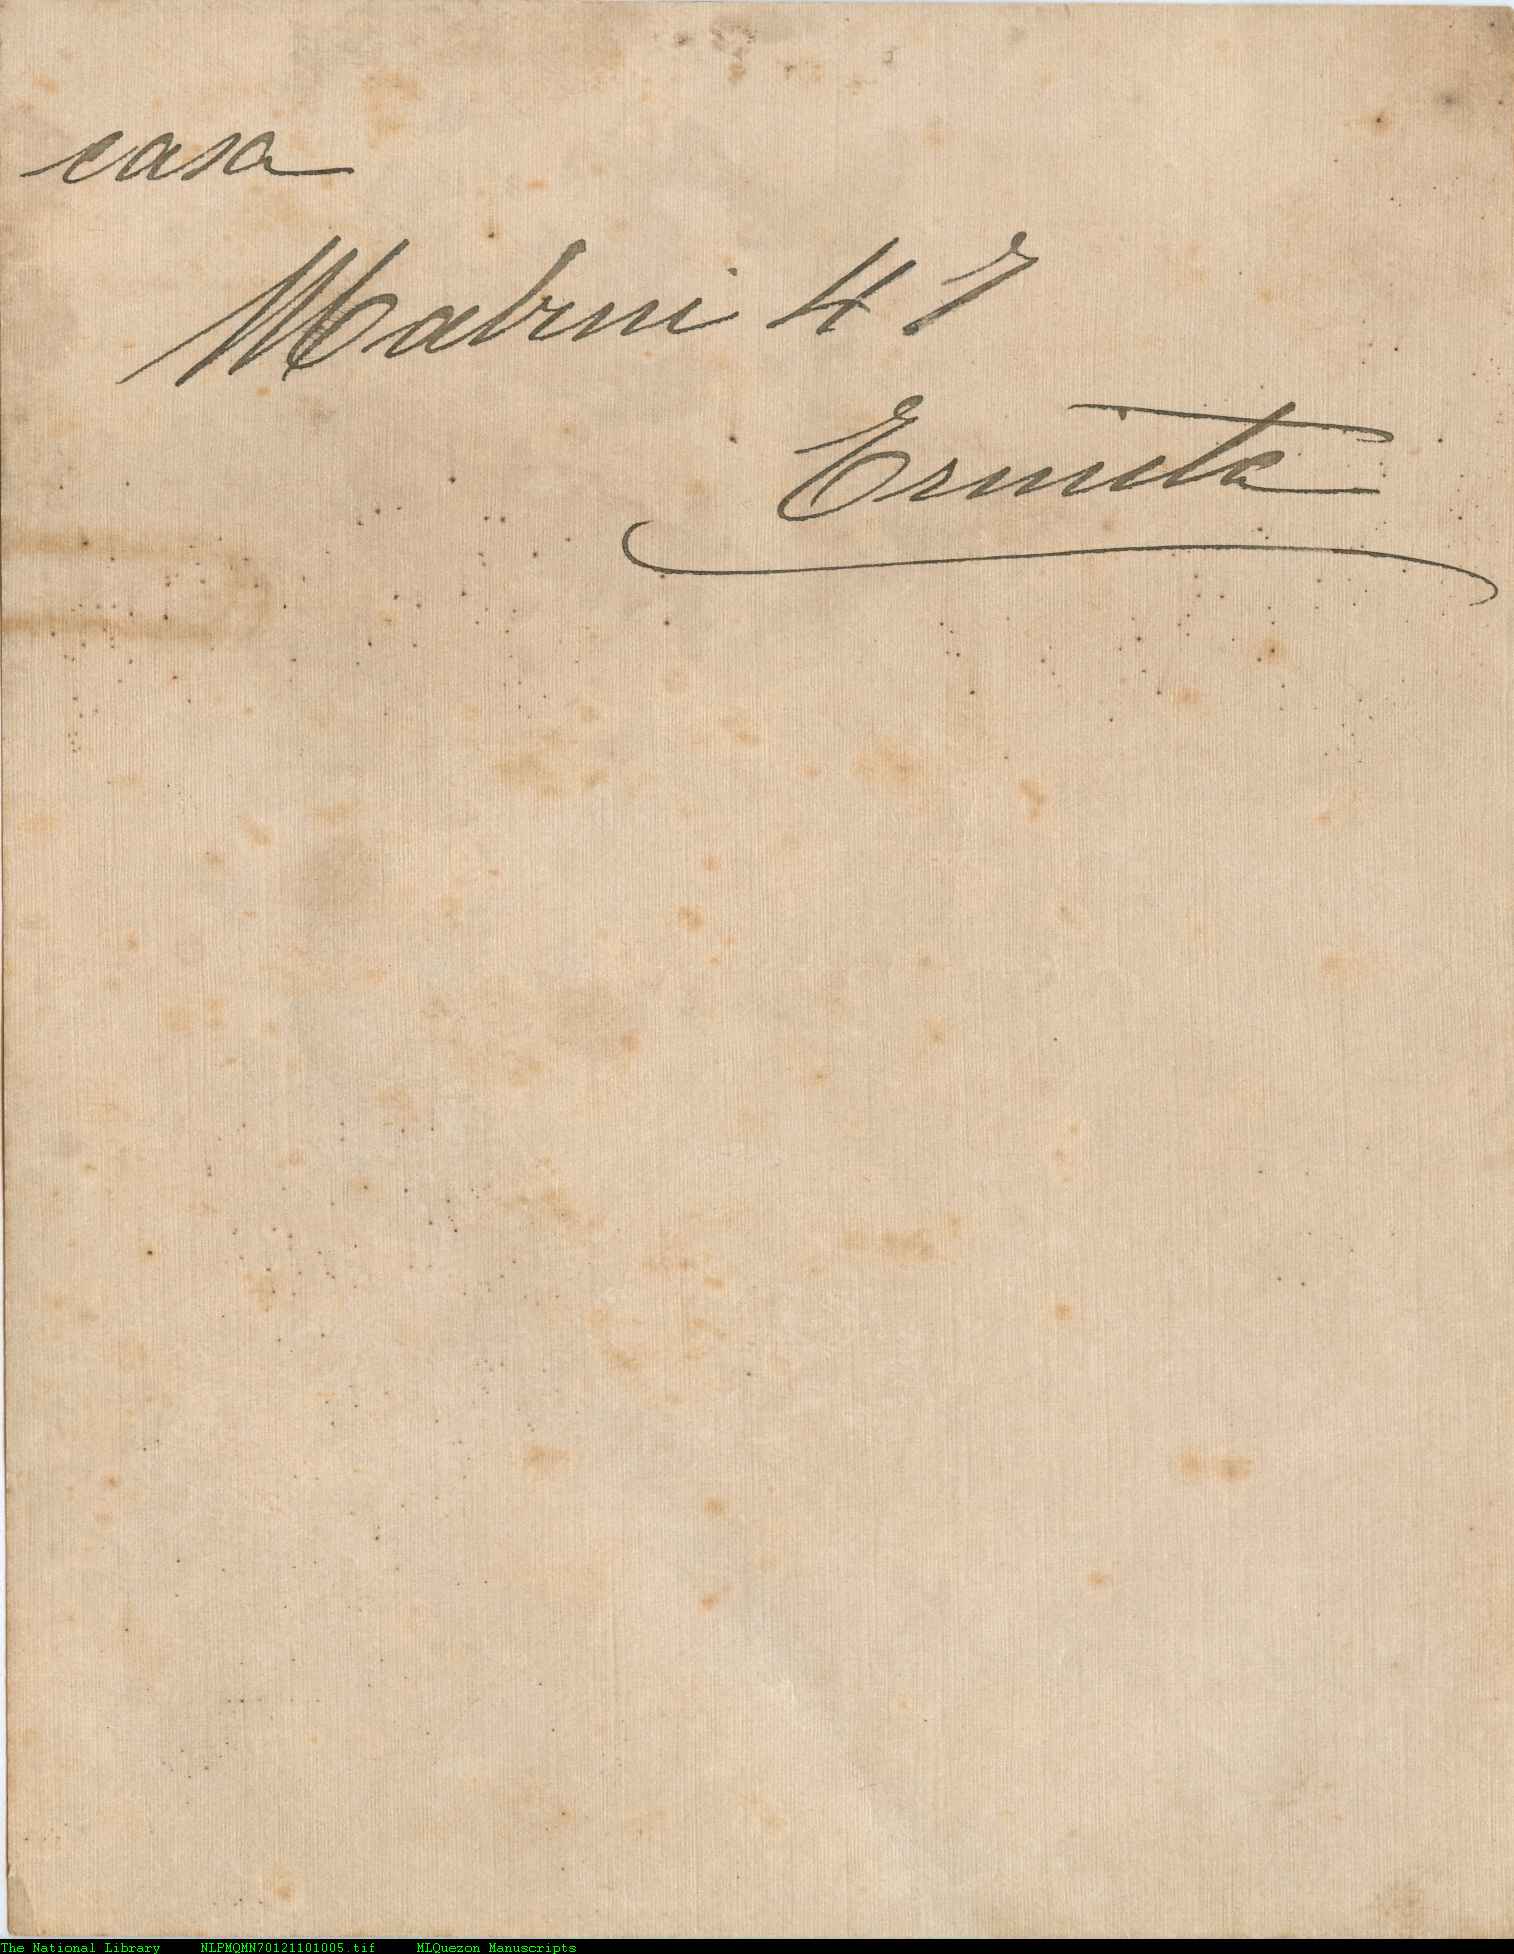 casa
Mabini 47
Ermita
The National Library NLPMQMN70121101005.tif MLQuezon Manuscripts